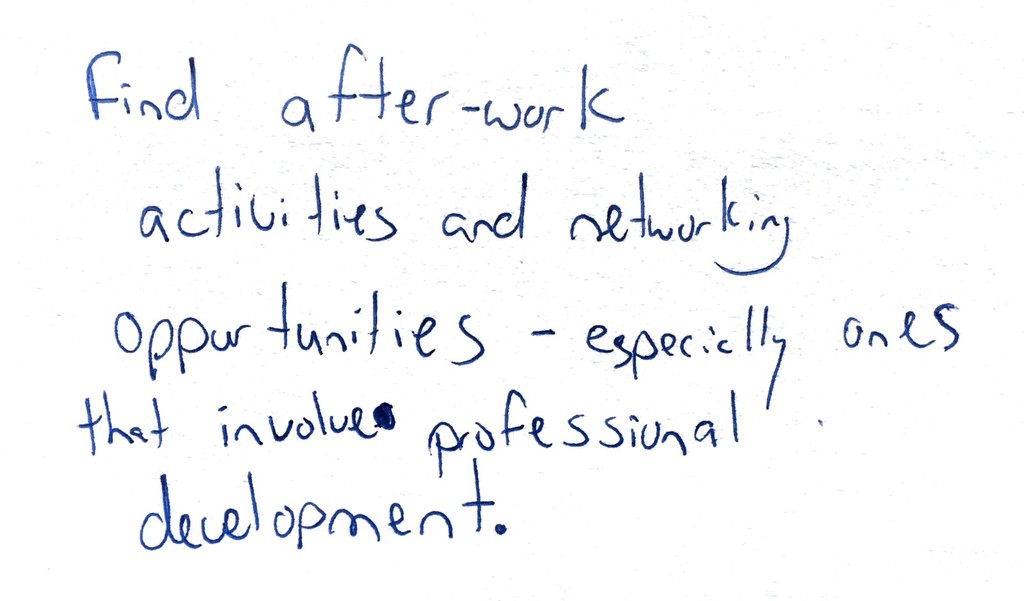 Find after-work
activities and networking
opportunities - especially ones
that involve professional
development.